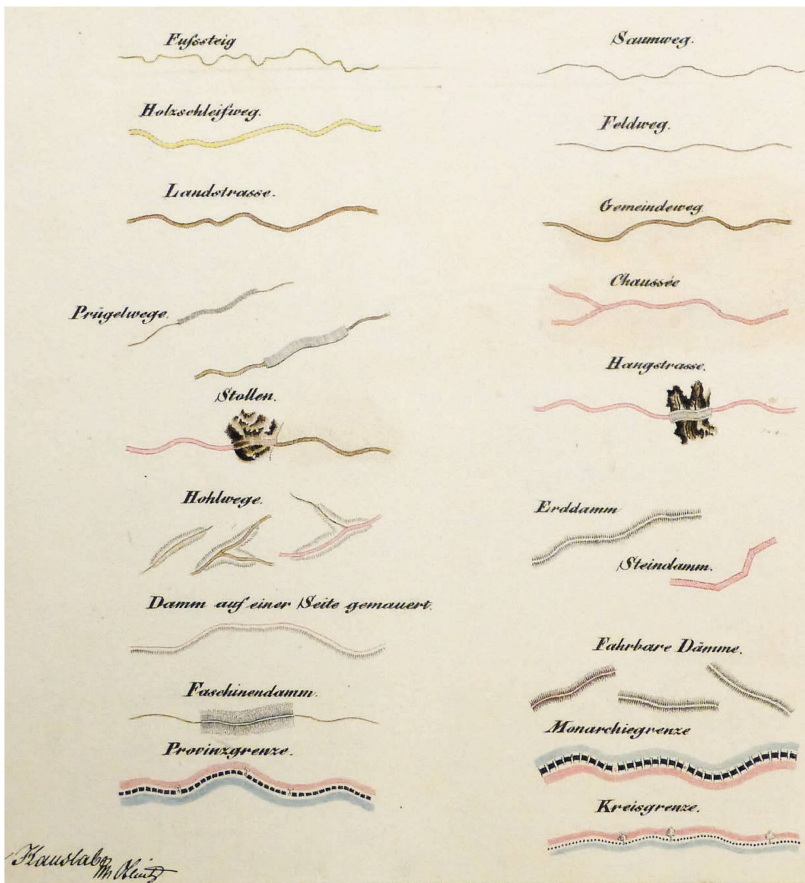 Fußsteig
Holzschleifweg.
Landstrasse.
Prügelwege.
Stollen.
Hohlwege.
Damm auf einer Seite gemauert.
Faschinendamm.
Provinzgrenze.
Saumweg.
Feldweg.
Gemeindeweg
Chaussée
Hangstrasse.
Erddamm
Steindamm.
Fahrbare Dämme.
Monarchiegrenze
Kreisgrenze.